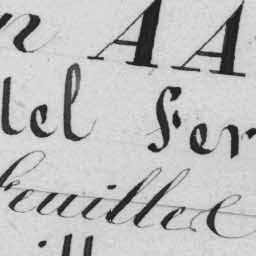 n AA
tel Fer
feuillet
ill